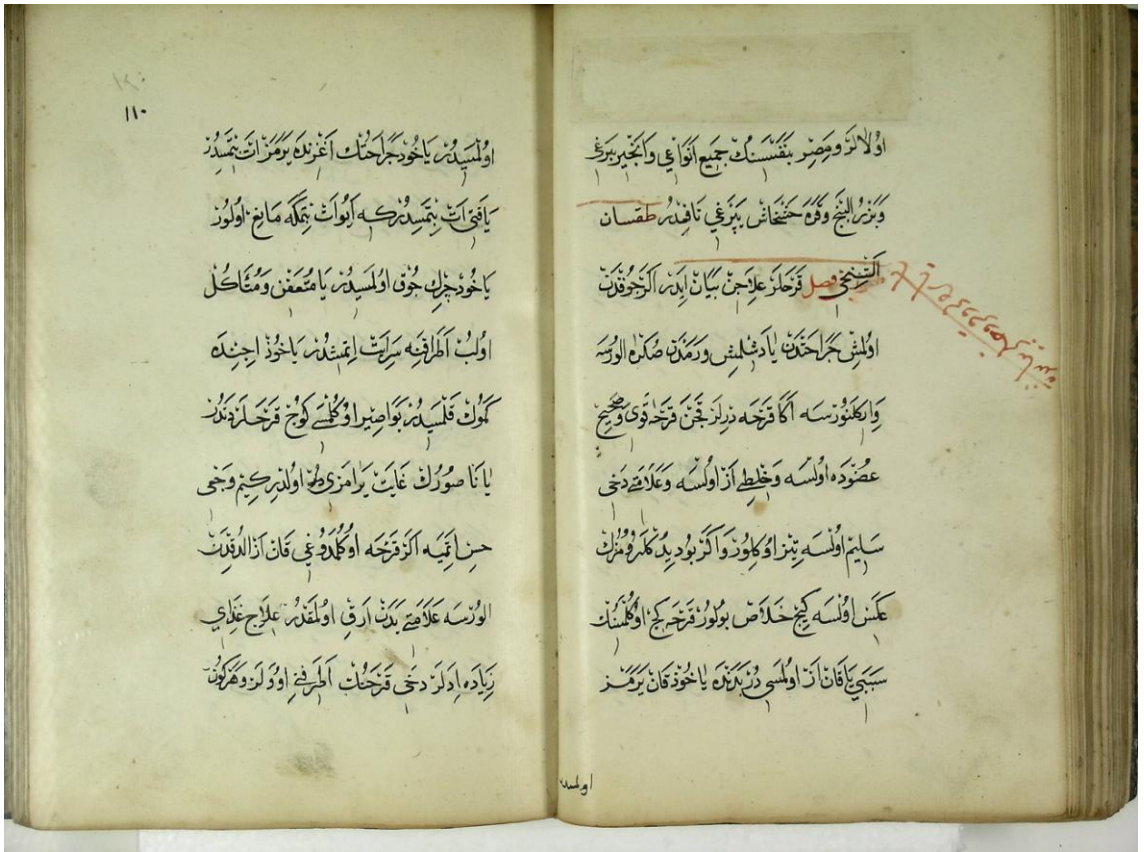 اولالر و مصر بنفسنك جميع انواعى و انجير يپرغى
و بزر البنج و قره خشخاش يپرغى نافعدر طقسان
فصل قرحلر علاجن بيان ايدر اكر چوقدن
اولمش جراحتدن يا دشلمش ورمدن صكره الورسه
و ايركلنورسه اكا قرحه ديرلر قچن قرحه قوى و صحيح
عضوده اولسه و خلطى از اولسه و علامتى دخى
سايم اولسه تيز اوكلور و اكر بو ديدكلرومزك
عكس اولسه كيج خلاص بولور قرحه كج اوكلمسنك
سببى يا قان از اولمسى در بدنده ياخود قان يرمز
اولمسد
١١٠
اولمسيدر ياخود جراحتك اغزنده يرمز ات بتمسيدر
يا قتى ات بتمسيدر كه ايو ات بتمكه مانع اولور
ياخود چرك چوق اولمسيدر يا متعفن و متاكل
اولب اطرافنه سرايت اتمشدر ياخود اچنده
كموك قلمسيدر بواصير اوكلمسى كوج قرحلردندر
يانا صورك غايت يرامزى اولدر كيم وجعى
حس اتميه اكر قرحه اوكلمدوغى قان ازالدقدن
الورسه علامتى بدن ارق اولمقدر علاج غذاى
زياده ادلر دخى قرحنك اطرفنى اوودلر و هركون